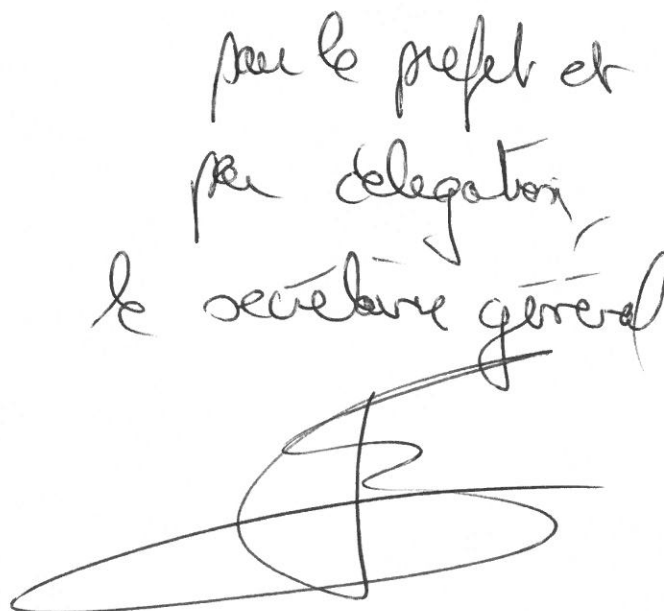 pour le prefet et
par délégation,
le secrétaire général